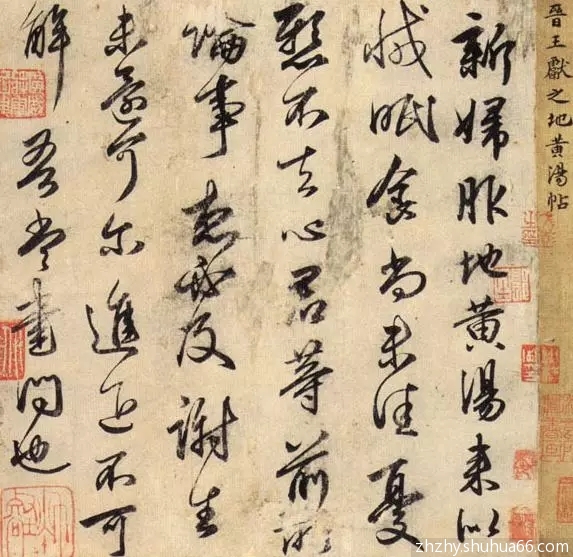 晉王獻之地黄湯帖
新婦服地黄湯来似
減眠食尚未佳憂
懸不去心君等前所
論事想必及謝生
未還可尔進退不可
解吾當書問也
zhzhyshuhua66.com